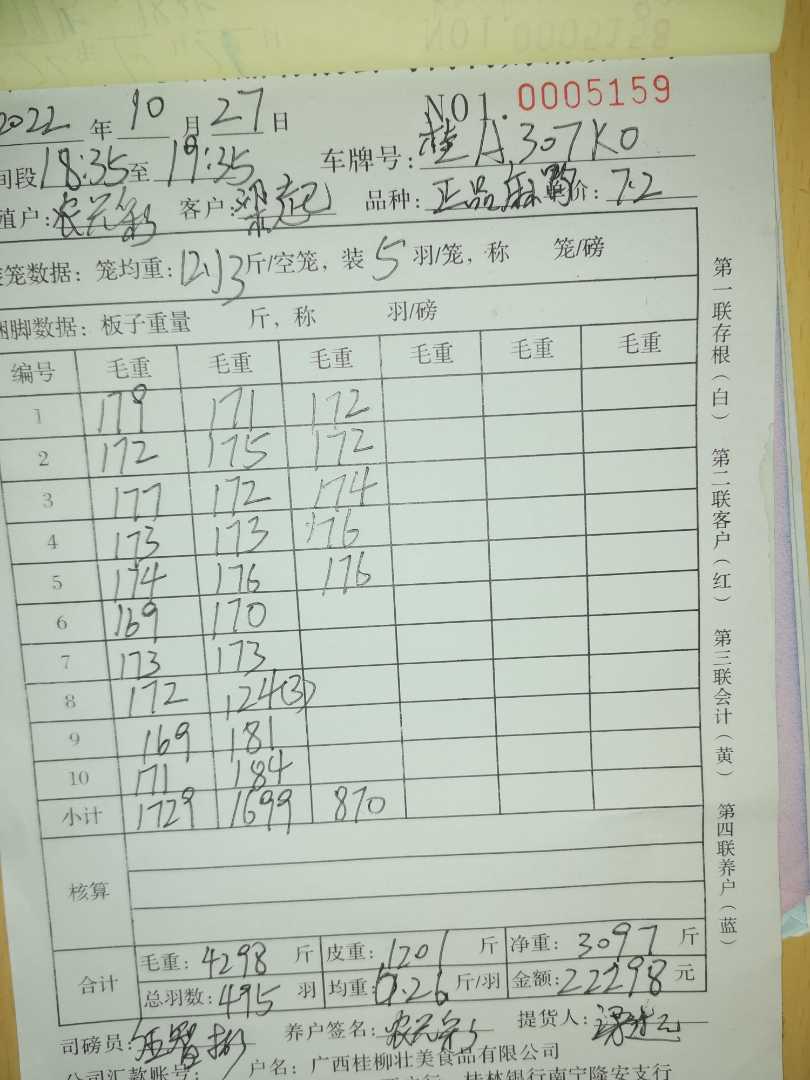 2022 年 10 月 27 日 NO1. 0005159
间段 18:35 至 19:35 车牌号: 桂A307K0
殖户: 客户: 品种: 正品麻鸭 价: 7.2
笼数据: 笼均重: 12.13 斤/空笼, 装 5 羽/笼, 称 笼/磅
捆脚数据: 板子重量 斤, 称 羽/磅
编号 毛重 毛重 毛重 毛重 毛重 毛重
1 179 171 172
2 172 175 172
3 177 172 174
4 173 173 176
5 174 176 176
6 169 170
7 173 173
8 172 124(3)
9 169 181
10 171 184
小计 1729 1699 870
核算
合计 毛重: 4298 斤 皮重: 1201 斤 净重: 3097 斤
总羽数: 495 羽 均重: 6.26 斤/羽 金额: 22298 元
司磅员: 养户签名: 提货人:
公司汇款账号: 户名: 广西桂柳壮美食品有限公司
桂林银行南宁隆安支行
第一联存根(白) 第二联客户(红) 第三联会计(黄) 第四联养户(蓝)